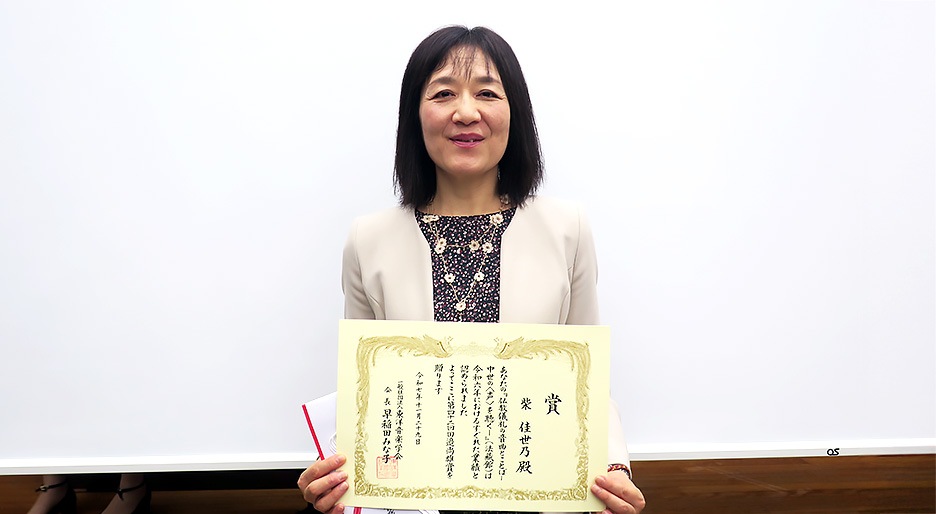 賞
柴 佳世乃 殿
あなたの『仏教儀礼の音曲とことば―
中世の〈声〉を聴く―』(法藏館)は
令和六年におけるすぐれた業績と
認められました
よってここに第四十二回田邉尚雄賞を
贈ります
令和七年十一月二十九日
一般社団法人東洋音楽学会
会長 早稲田みな子